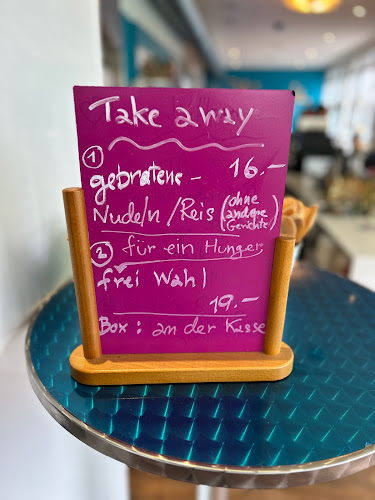 Take away
① gebratene – 16.–
Nudeln / Reis (ohne andere Gerichte)
② für ein Hunger
frei Wahl
19.–
Box : an der Kasse